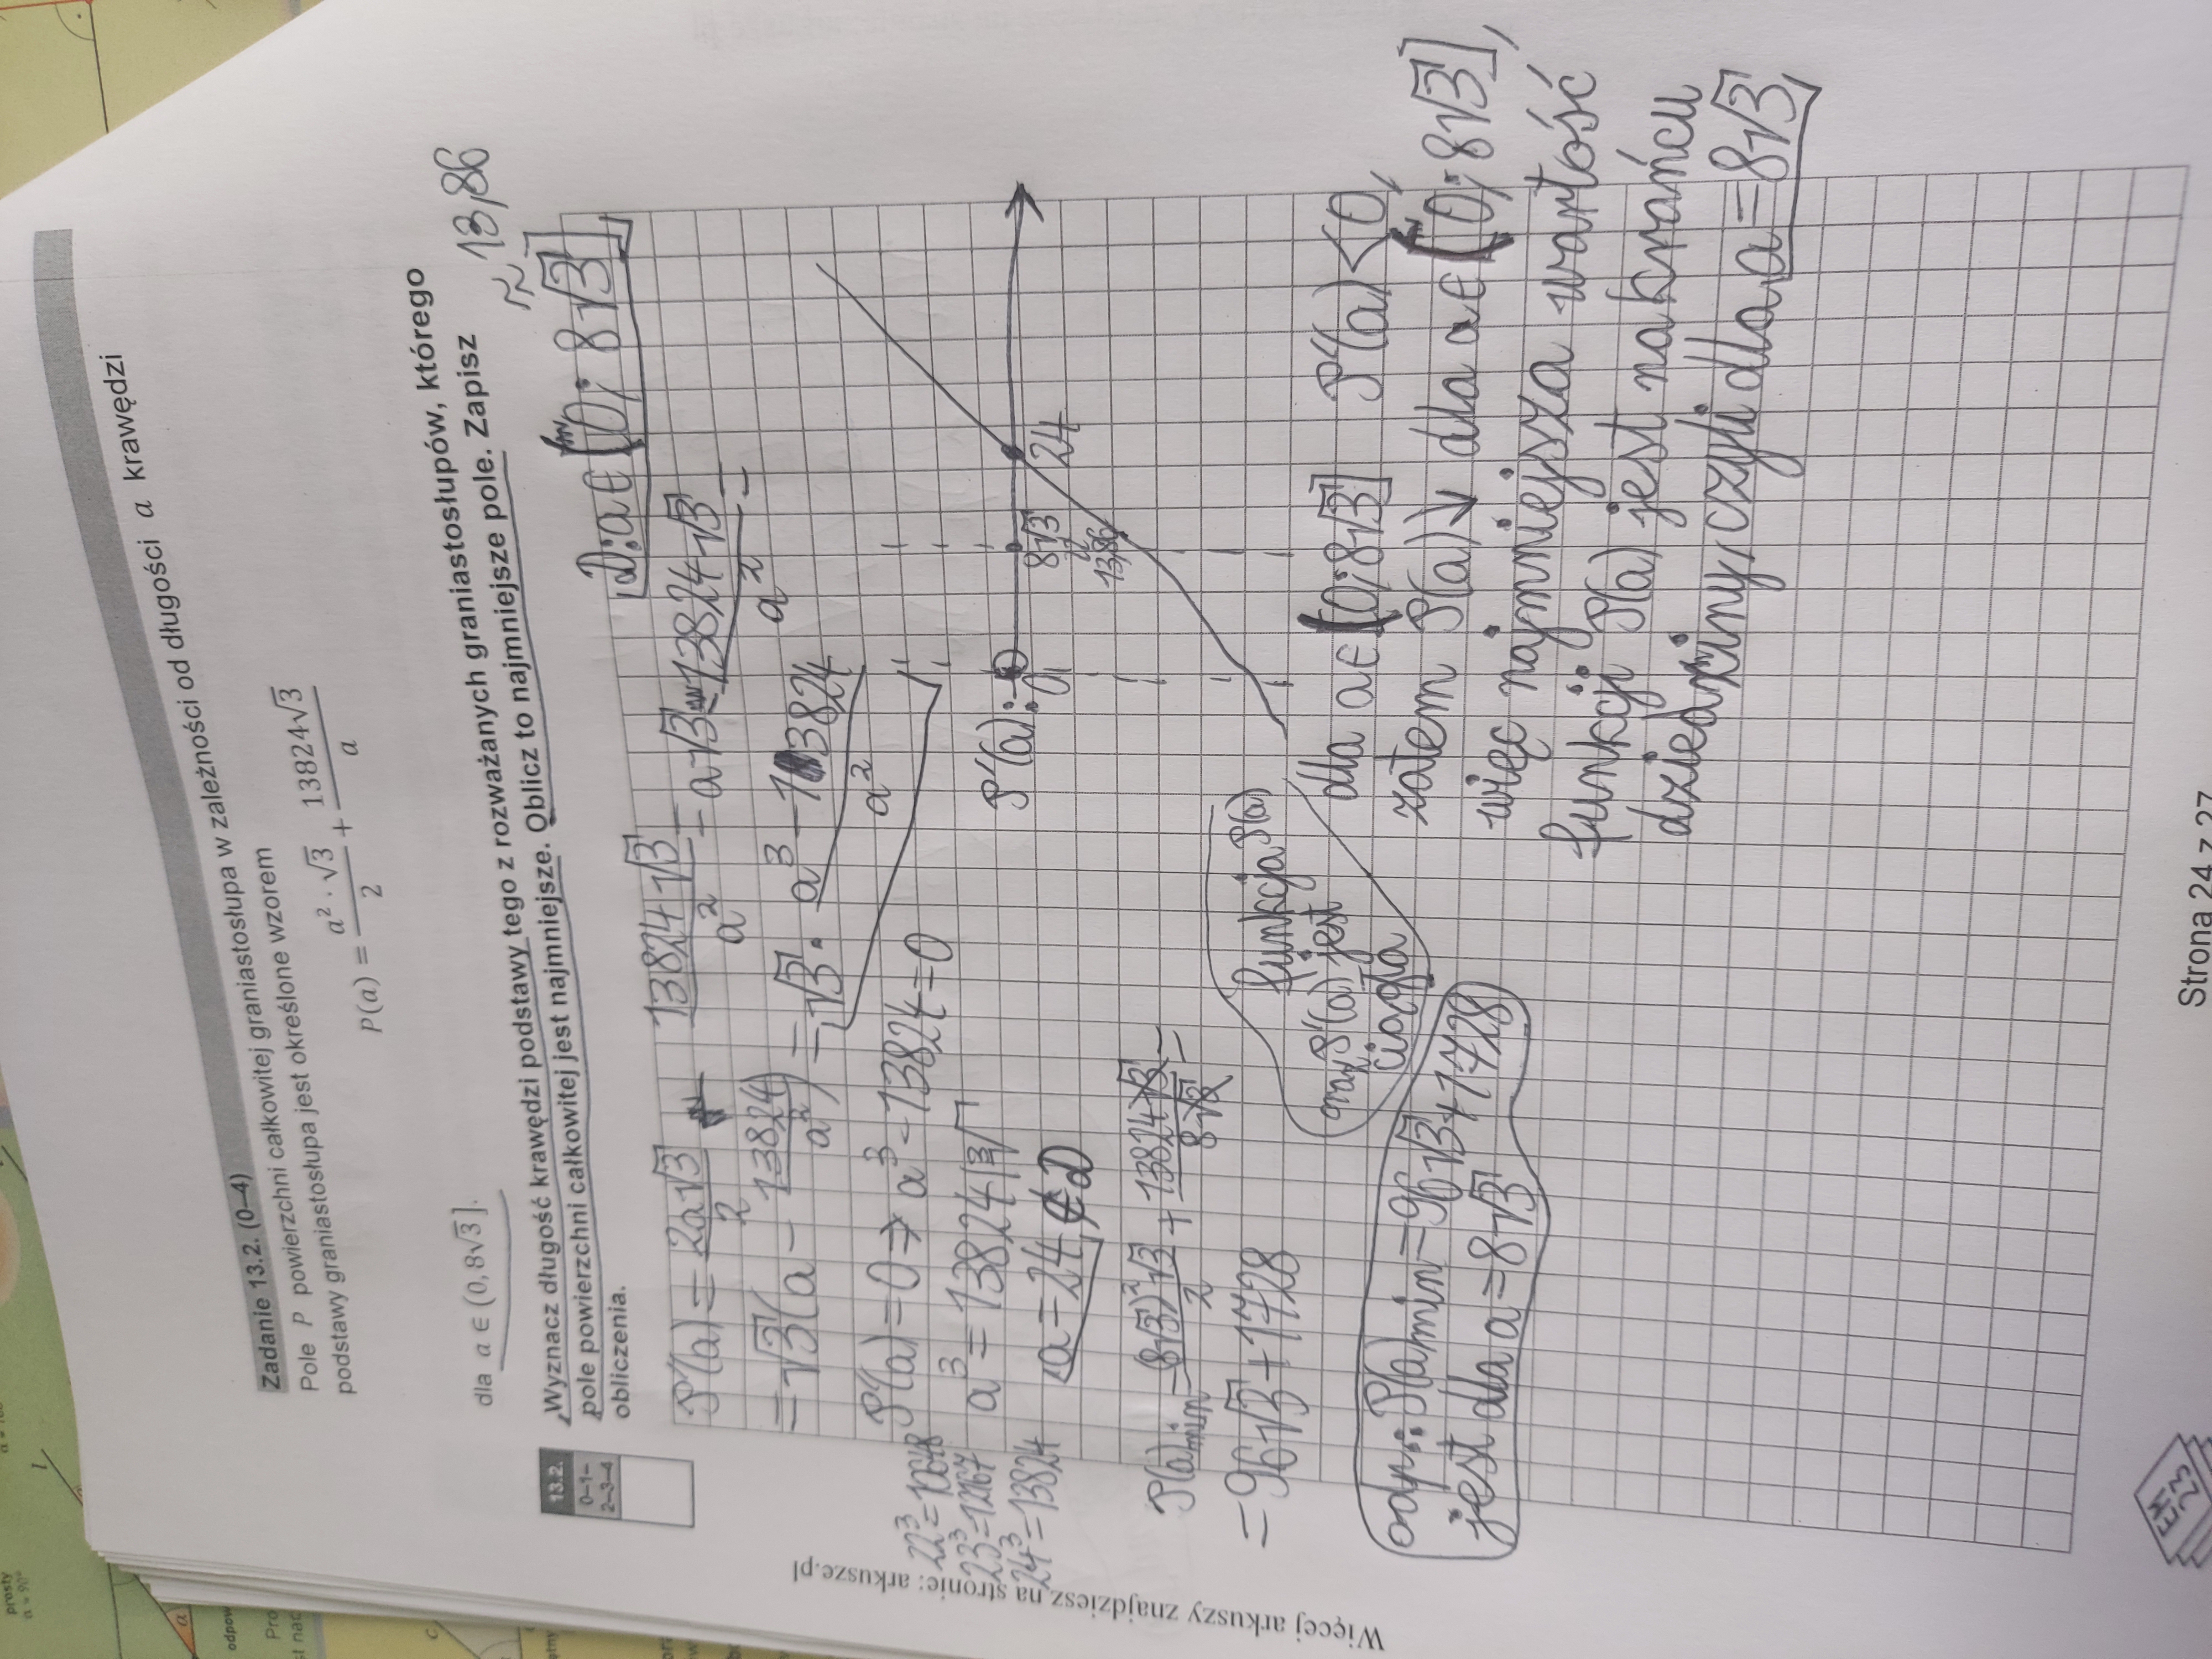 Zadanie 13.2. (0–4)
Pole P powierzchni całkowitej graniastosłupa w zależności od długości a krawędzi
podstawy graniastosłupa jest określone wzorem
P(a) = a² · √3 / 2 + 13824√3 / a
dla a ∈ (0, 8√3].
Wyznacz długość krawędzi podstawy tego z rozważanych graniastosłupów, którego
pole powierzchni całkowitej jest najmniejsze. Oblicz to najmniejsze pole. Zapisz
obliczenia.
≈ 13,86
13.2.
0–1–
2–3–4
D: a ∈ (0; 8√3]
P'(a) = 2a√3 / 2 - 13824√3 / a² = a√3 - 13824√3 / a² =
= √3(a - 13824 / a²) = √3 · a³ - 13824 / a²
P'(a) = 0 → a³ - 13824 = 0
a³ = 13824 |³√
a = 24 ∉ D
22³ = 10648
23³ = 12167
24³ = 13824
P'(a): 0 8√3 24
13,86
P(a)min = (8√3)²√3 / 2 + 13824√3 / 8√3 =
= 96√3 + 1728
funkcja P(a)
oraz P'(a) jest
ciągła
odp.: P(a)min = 96√3 + 1728
jest dla a = 8√3
dla a ∈ (0; 8√3] P'(a) < 0,
zatem P(a) ↘ dla a ∈ (0; 8√3],
więc najmniejsza wartość
funkcji P(a) jest na krańcu
dziedziny, czyli dla a = 8√3
Więcej arkuszy znajdziesz na stronie: arkusze.pl
Strona 24 z 27
prosty
α = 90°
α
odpow